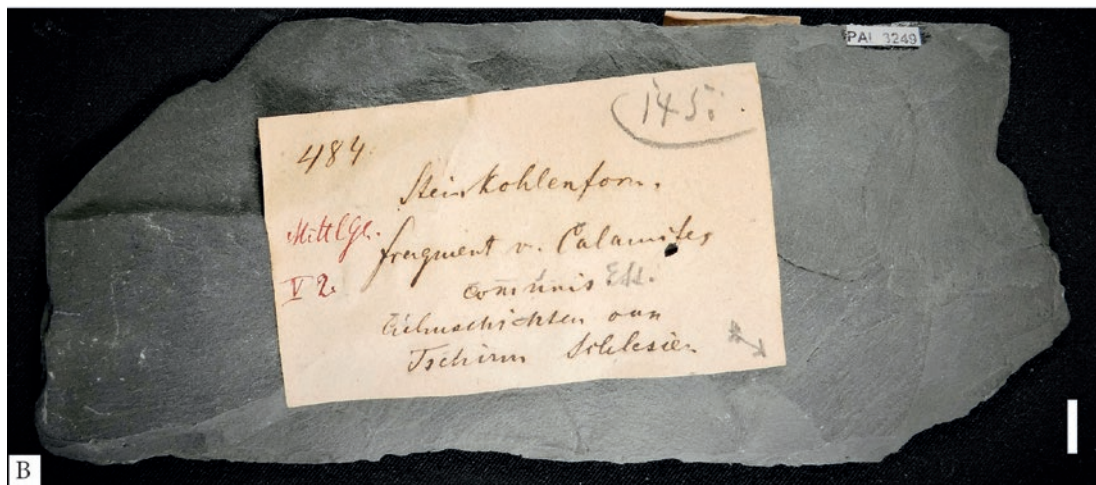 PAL 3249
145.
484.
Steinkohlenform.
Mittlgl.
fragment v. Calamites
V 2.
communis Ett.
von
Tschirm Schlesien
B